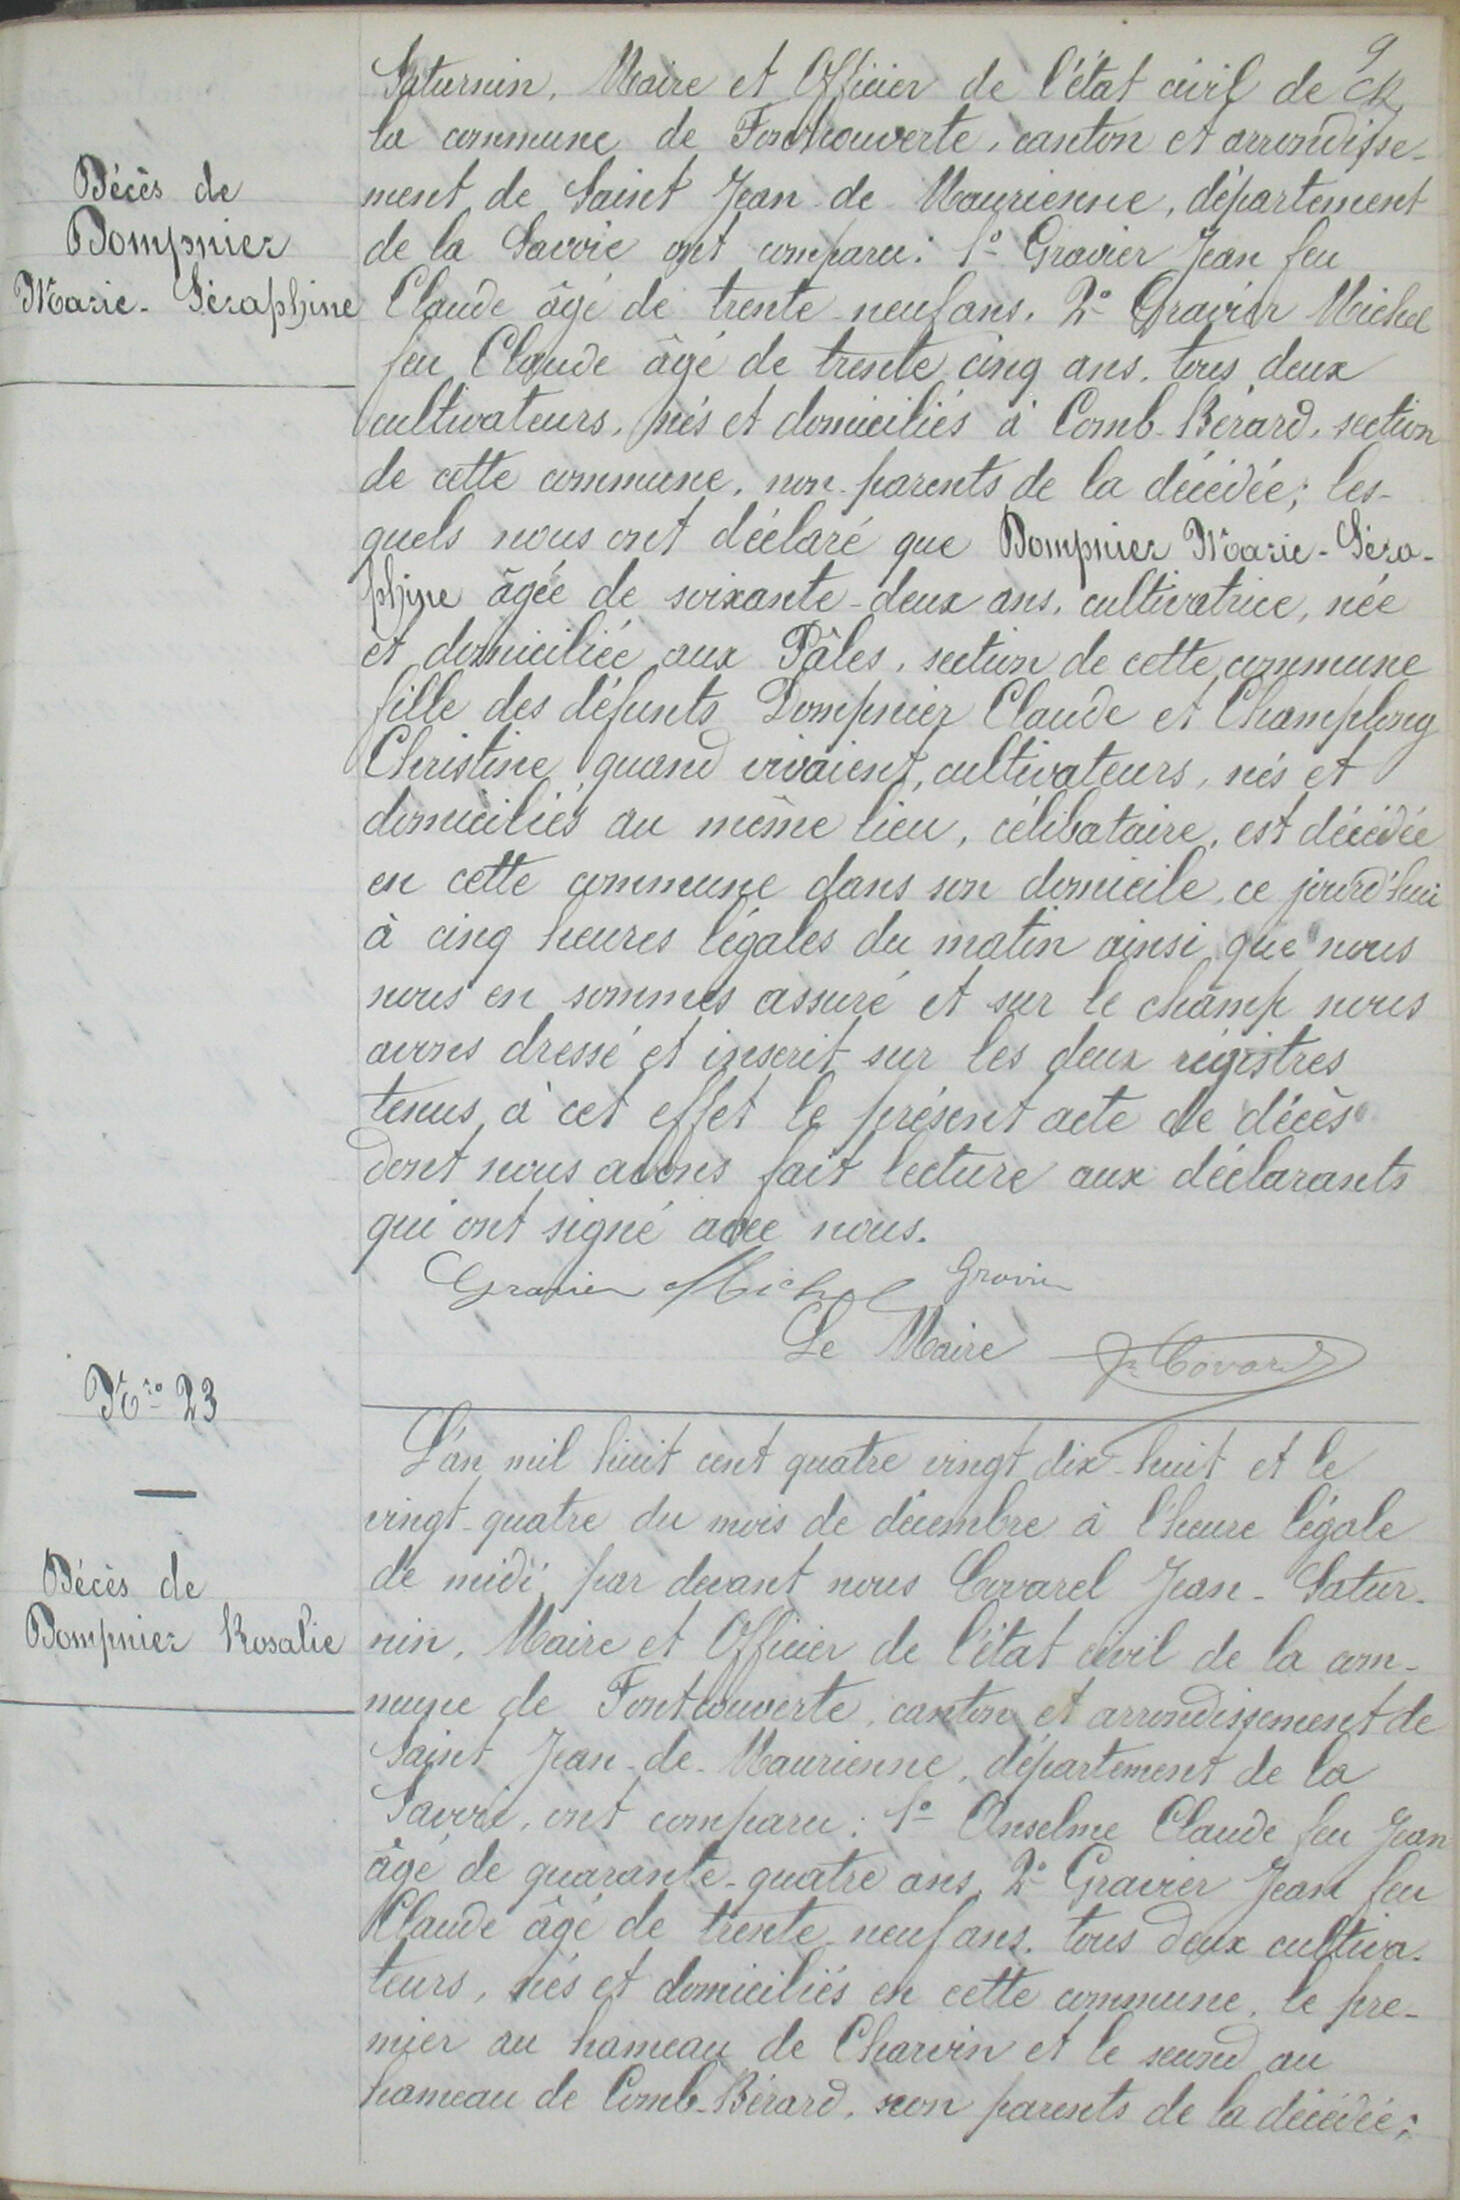 9
Saturnin, Maire et Officier de l'état civil de
la commune de Fontcouverte, canton et arrondisse-
ment de Saint Jean de Maurienne, département
de la Savoie ont comparu: 1º Gravier Jean feu
Claude âgé de trente-neuf ans. 2º Gravier Michel
feu Claude âgé de trente cinq ans. tous deux
cultivateurs, nés et domiciliés à Comb-Bérard, section
de cette commune, non parents de la décédée; les-
quels nous ont déclaré que Dompnier Marie-Séra-
phine âgée de soixante-deux ans, cultivatrice, née
et domiciliée aux Pâles, section de cette commune
fille des défunts Dompnier Claude et Champlong
Christine quand vivaient, cultivateurs, nés et
domiciliés au même lieu, célibataire, est décédée
en cette commune dans son domicile, ce jourd'hui
à cinq heures légales du matin ainsi que nous
nous en sommes assuré et sur le champ nous
avons dressé et inscrit sur les deux régistres
tenus à cet effet le présent acte de décès
dont nous avons fait lecture aux déclarants
qui ont signé avec nous.
Gravier Michel Gravier
Le Maire
Décès de
Dompnier
Marie-Séraphine
Nro 23
Décès de
Dompnier Rosalie
L'an mil huit cent quatre vingt dix-huit et le
vingt-quatre du mois de décembre à l'heure légale
de midi, par devant nous Covarel Jean-Satur-
nin, Maire et Officier de l'état civil de la com-
mune de Fontcouverte, canton et arrondissement de
Saint-Jean-de-Maurienne, département de la
Savoie, ont comparu: 1º Anselme Claude feu Jean
âgé de quarante-quatre ans, 2º Gravier Jean feu
Claude âgé de trente-neuf ans, tous deux cultiva-
teurs, nés et domiciliés en cette commune, le pre-
mier au hameau de Charvin et le second au
hameau de Comb-Bérard, non parents de la décédée;